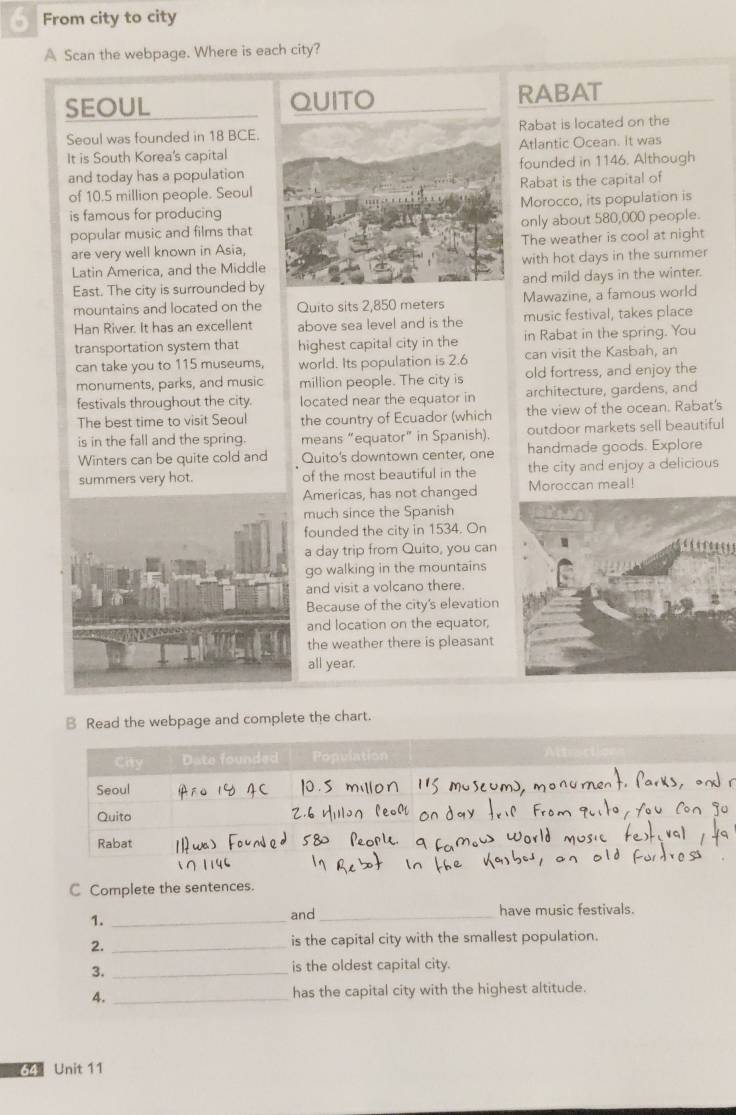 6 From city to city
A Scan the webpage. Where is each city?
SEOUL
Seoul was founded in 18 BCE.
It is South Korea's capital
and today has a population
of 10.5 million people. Seoul
is famous for producing
popular music and films that
are very well known in Asia,
Latin America, and the Middle
East. The city is surrounded by
mountains and located on the
Han River. It has an excellent
transportation system that
can take you to 115 museums,
monuments, parks, and music
festivals throughout the city.
The best time to visit Seoul
is in the fall and the spring.
Winters can be quite cold and
summers very hot.
QUITO
Quito sits 2,850 meters
above sea level and is the
highest capital city in the
world. Its population is 2.6
million people. The city is
located near the equator in
the country of Ecuador (which
means "equator" in Spanish).
Quito's downtown center, one
of the most beautiful in the
Americas, has not changed
much since the Spanish
founded the city in 1534. On
a day trip from Quito, you can
go walking in the mountains
and visit a volcano there.
Because of the city's elevation
and location on the equator,
the weather there is pleasant
all year.
RABAT
Rabat is located on the
Atlantic Ocean. It was
founded in 1146. Although
Rabat is the capital of
Morocco, its population is
only about 580,000 people.
The weather is cool at night
with hot days in the summer
and mild days in the winter.
Mawazine, a famous world
music festival, takes place
in Rabat in the spring. You
can visit the Kasbah, an
old fortress, and enjoy the
architecture, gardens, and
the view of the ocean. Rabat's
outdoor markets sell beautiful
handmade goods. Explore
the city and enjoy a delicious
Moroccan meal!
B Read the webpage and complete the chart.
City Date founded Population Attractions
Seoul Año 18 AC 10.5 millon 115 museums, monument, Parks, and
Quito 2.6 Millon Peopl on day trip From quito, you Can go
Rabat It was Founded 580 People a famous world music festival,
in 1146 in Rebat in the Kasbas, an old Fortress.
C Complete the sentences.
1. and have music festivals.
2. is the capital city with the smallest population.
3. is the oldest capital city.
4. has the capital city with the highest altitude.
64 Unit 11